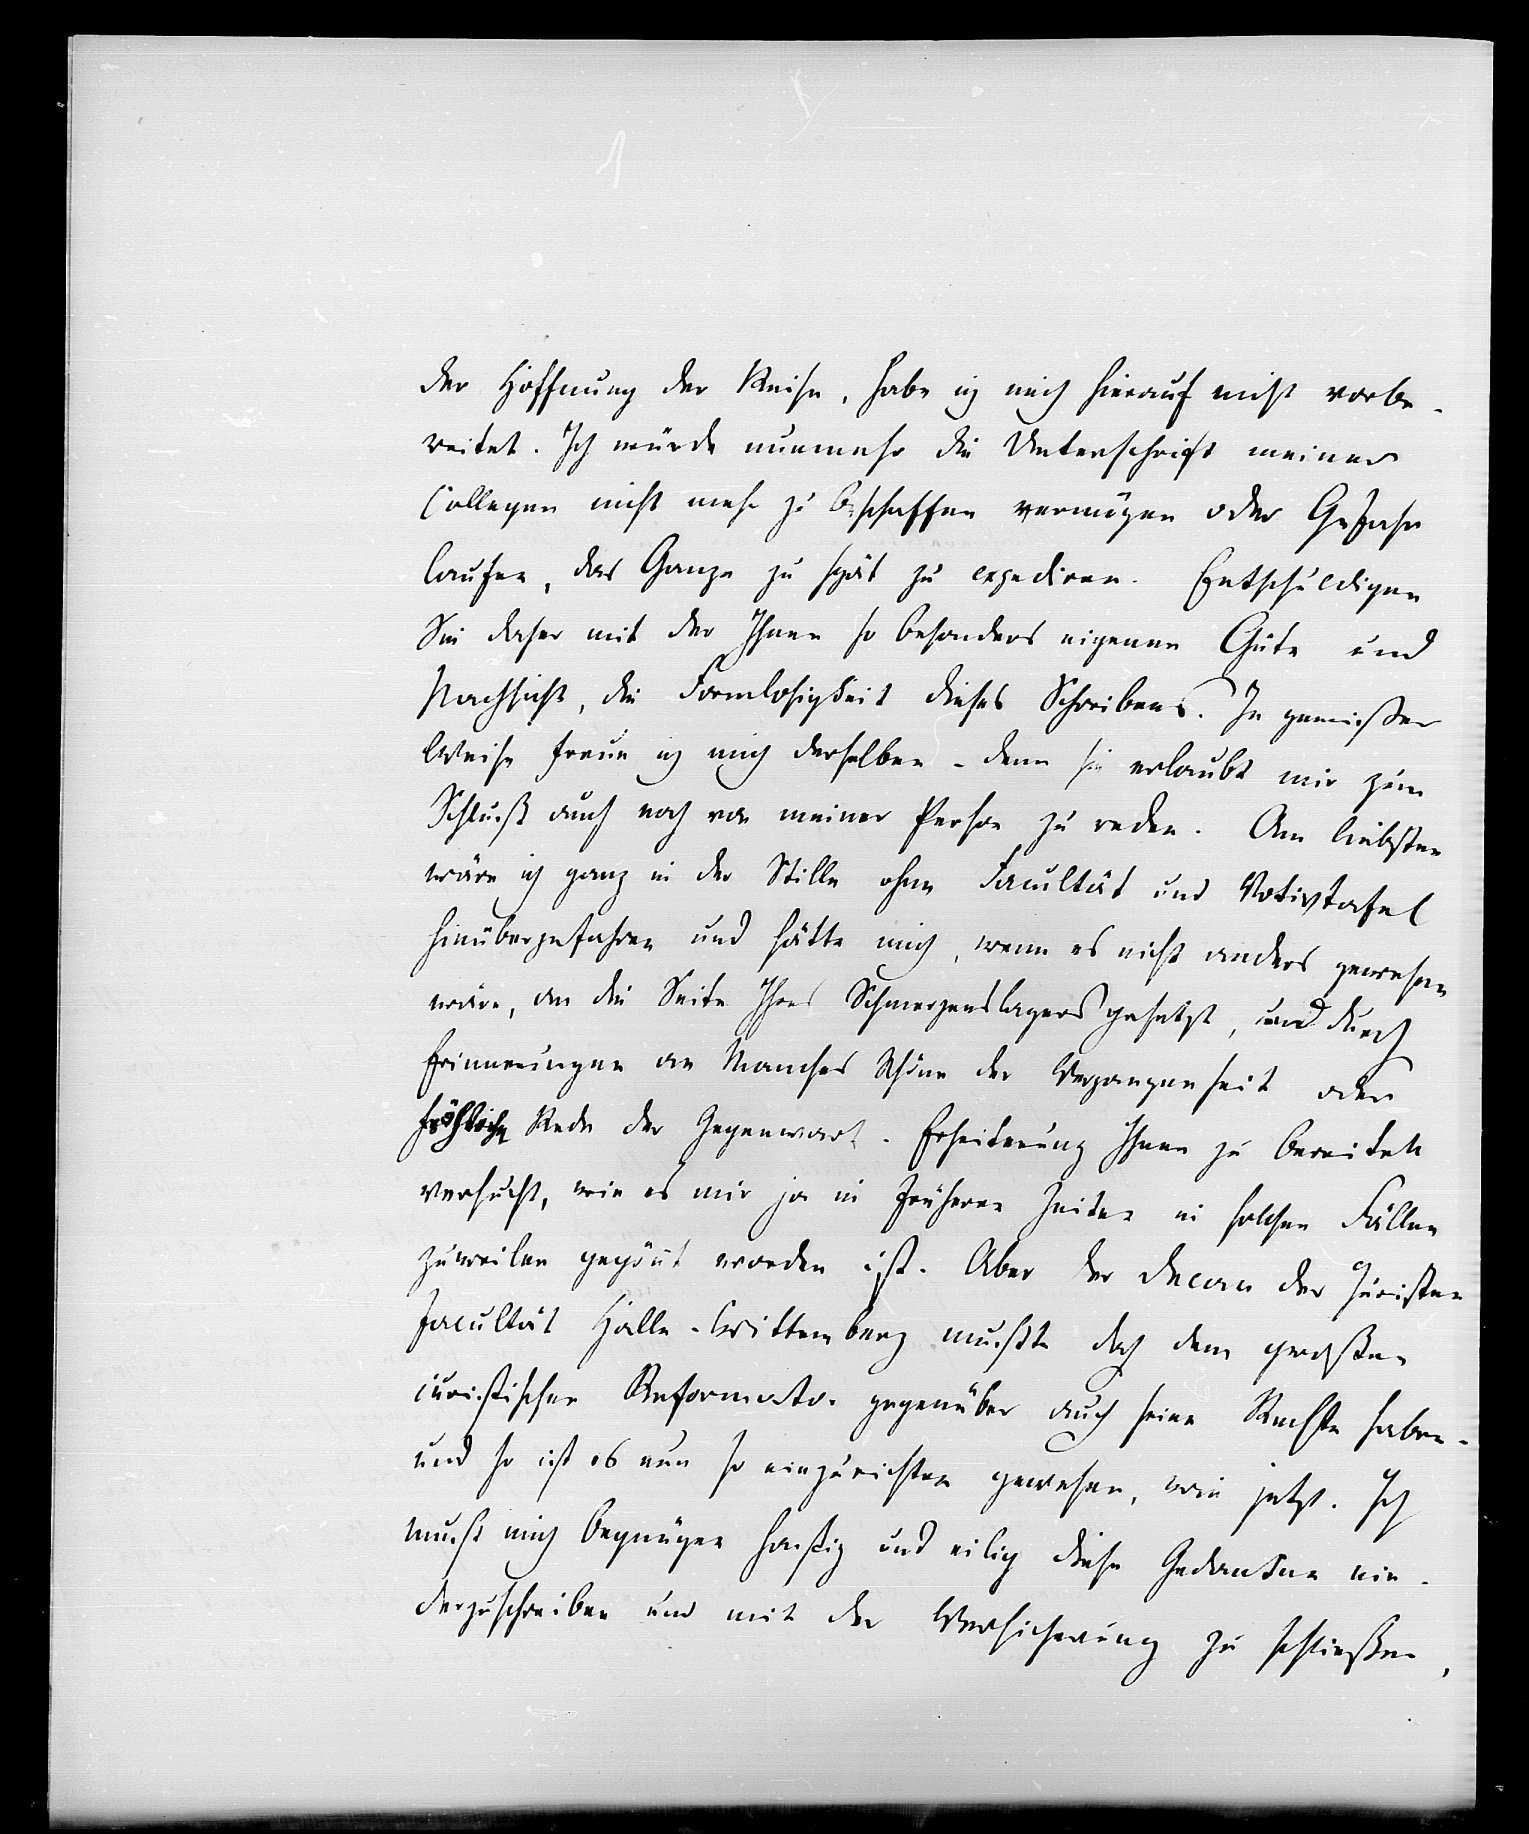 der Hoffnung der Reise, habe ich mich hierauf nicht vorbe-
reitet. Ich würde nunmehr die Unterschrift meiner
Collegen nicht mehr zu beschaffen vermögen oder Gefahr
laufen, das Ganze zu spät zu expediren. Entschuldigen
Sie daher mit der Ihnen so besonders eigenen Güte und
Nachsicht, die Formlosigkeit dieses Schreibens. In gewisser
Weise freue ich mich derselben - denn sie erlaubt mir zum
Schluß auch noch von meiner Person zu reden. Am liebsten
wäre ich ganz in der Stille ohne Facultät und Votivtafel
hinübergefahren und hätte mich, wenn es nicht anders gewesen
wäre, an die Seite Ihres Schmerzenslagers gesetzt, und durch
Erinnerungen an Manches Schöne der Vergangenheit oder
fröhliche Rede der Gegenwart - Erheiterung Ihnen zu bereiten
versucht, wie es mir ja in früheren Zeiten in solchen Fällen
zuweilen gegönnt worden ist. Aber der Decan der Juristen
facultät Halle-Wittemberg mußte doch dem großen
juristischen Reformator gegenüber auch seine Rechte haben -
und so ist es nun so einzurichten gewesen, wie jetzt. Ich
muß mich begnügen hastig und eilig diese Gedanken nie-
derzuschreiben und mit der Versicherung zu schließen,